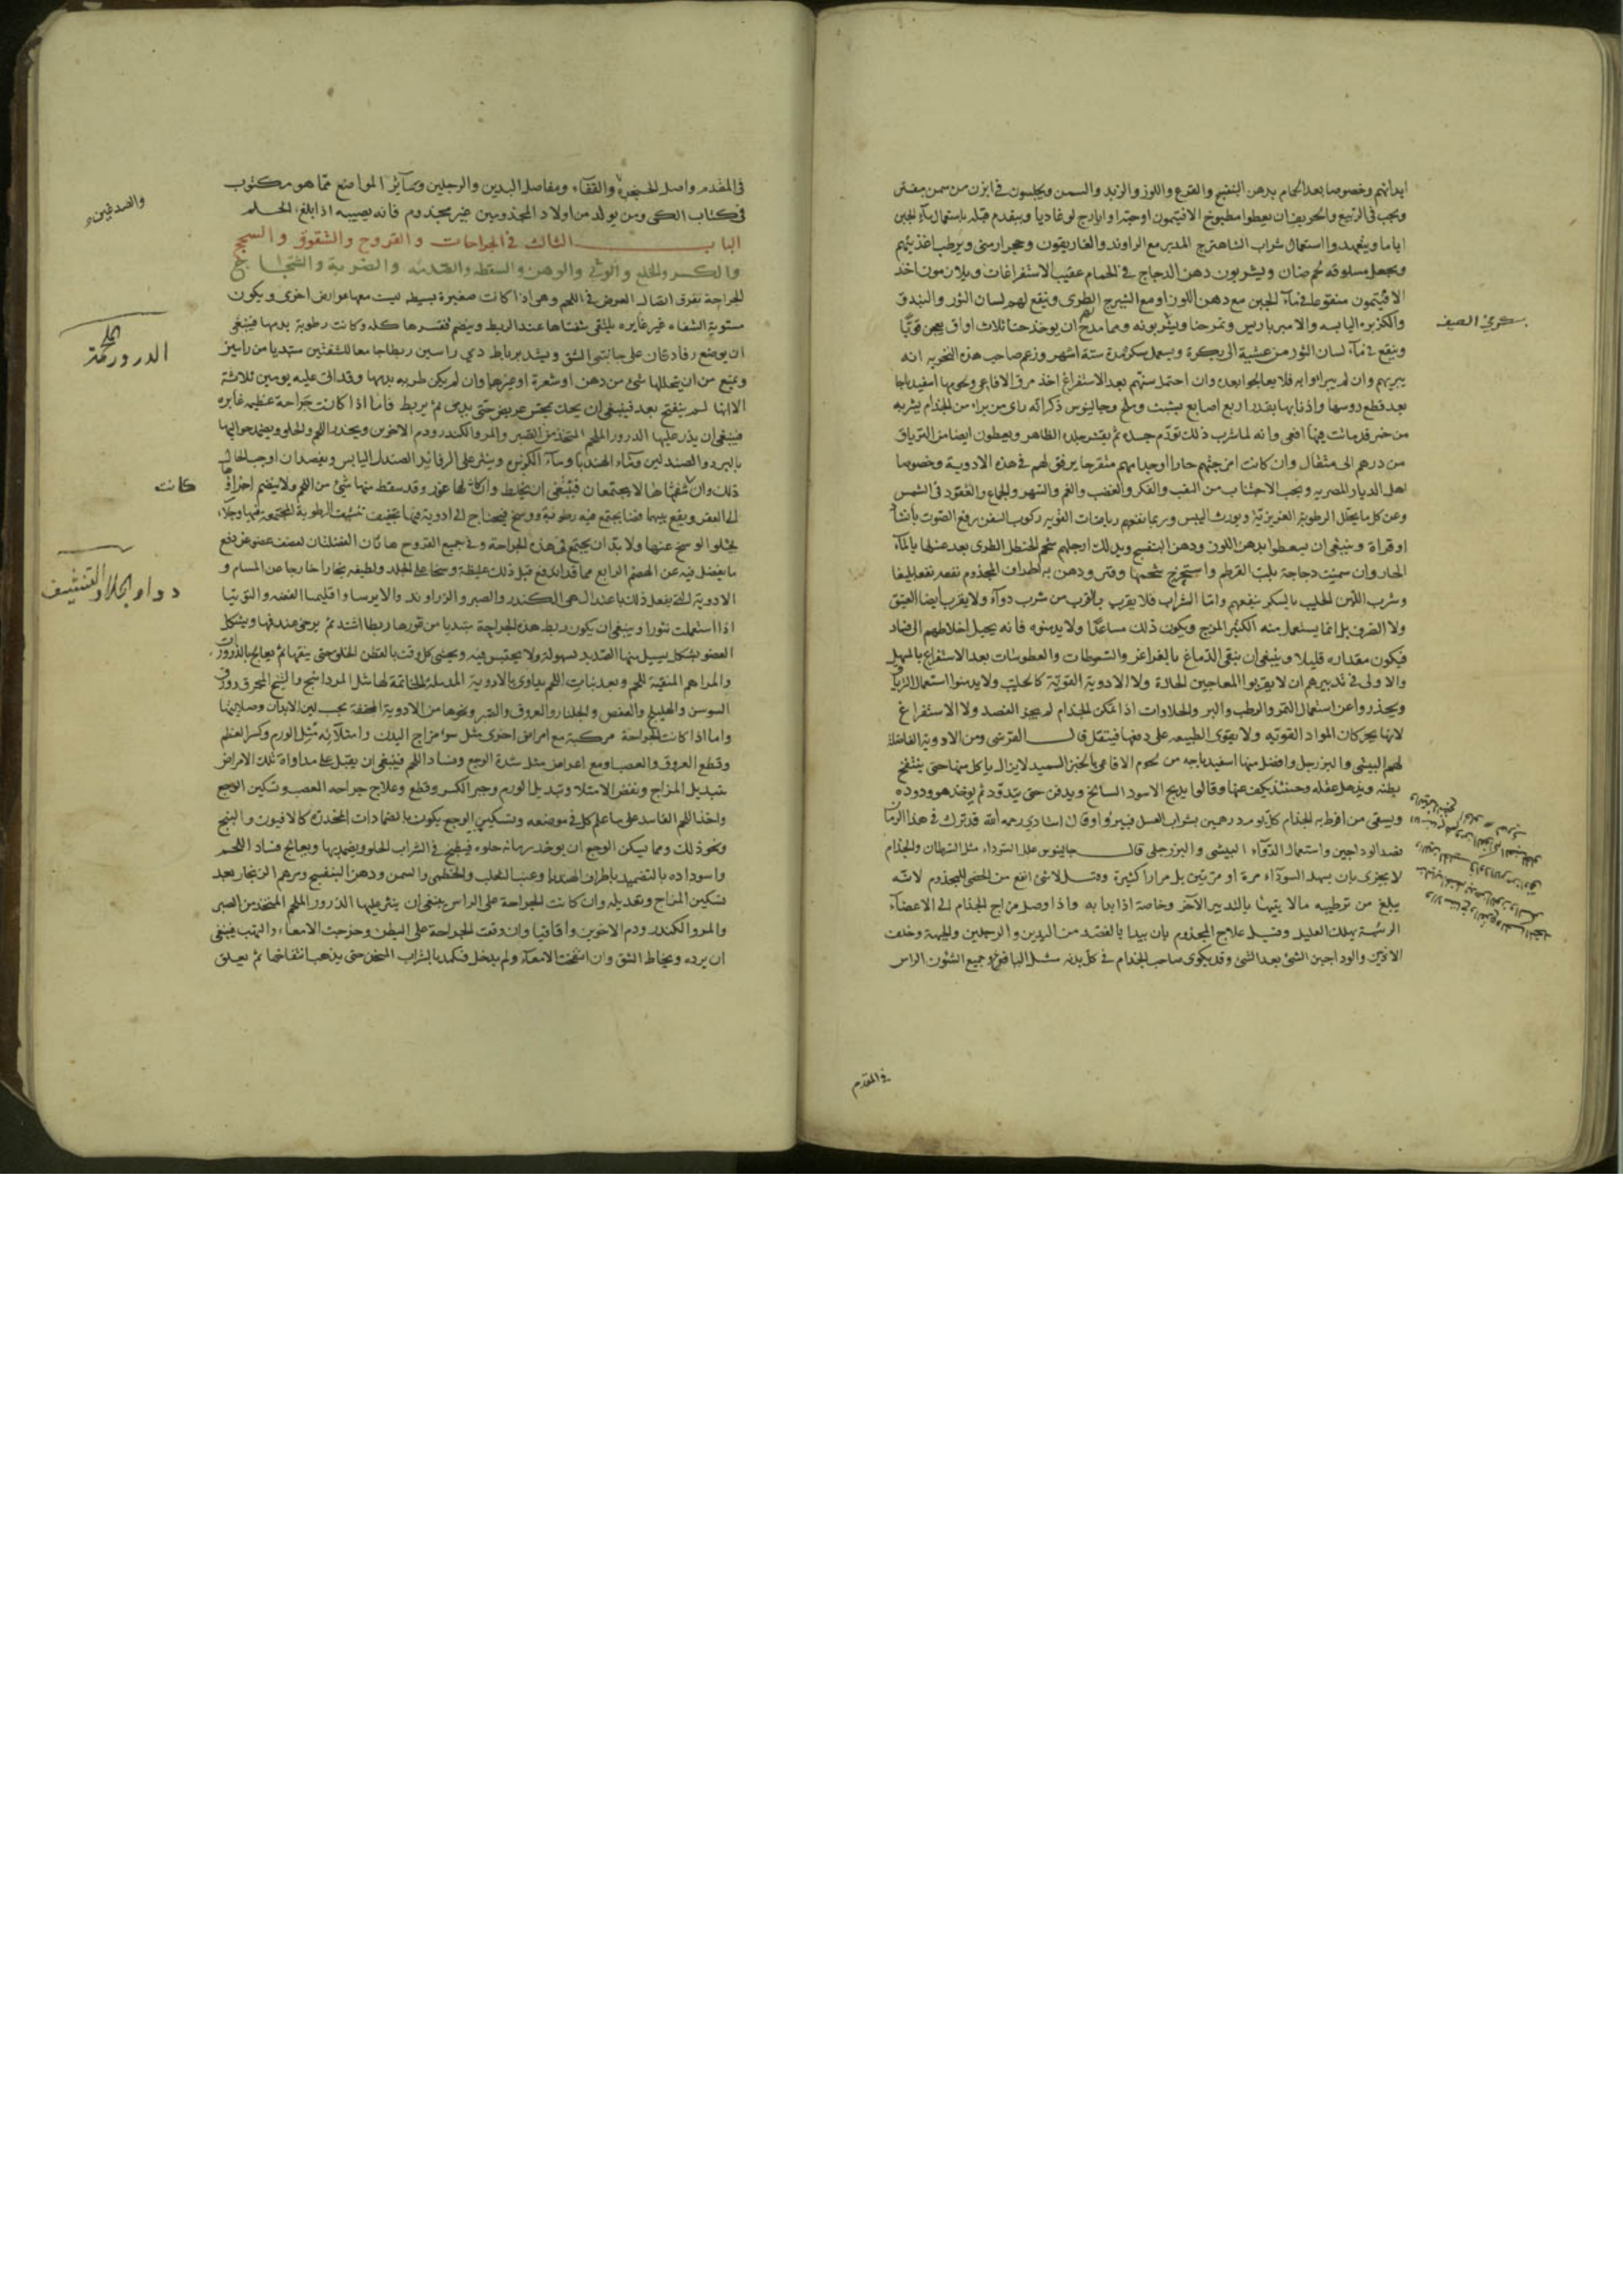 ابدانهم وخصوصا بعد الحام بدهن البنفسج والقرع واللوز والزبد والسمن ويجلسون فى ابزن من سمن مفتر
ويجب فى الربيع والخريف ان يعطوا مطبوخ الافتيمون اوحبه او ايارج لوغاديا ويتقدم قبله باستعمال مآء الجبن
اياما ويتعهدوا استعمال شراب الشاهترج المدبر مع الراوند والغاريقون وحجر ارمنى ويرطب اغذيتهم
ويجعل مسلوقه لحم ضان ويشربون دهن الدجاج فى الحمام عقيب الاستفراغات ويلازمون اخذ
الافتيمون منقوعا فى مآء الجبن مع دهن اللوز او مع الشيرج الطرى وينقع لهم لسان الثور والبندق
والكزبره اليابسه والامبرباريس وتمرحنا ويشربونه ومما مدح ان يوخذ حنا ثلاث اواق
وينقع فى مآء لسان الثور من عشية الى بكرة ويعمل سكر مدة ستة اشهر وزعم صاحب هذه التجربه انه
يبريهم وان لم يبراوا به فلا يعالجوا بعده وان احتمل سنهم بعد الاستفراغ اخذ مرق الافاعى ولحومها اسفيدباجا
بعد قطع روسها واذنابها بقدر اربع اصابع بشبت وملح وجالينوس ذكر انه راى من برا من الجذام بشربه
من خمر قد ماتت فيها افعى وانه لما شرب ذلك تورّم جسده ثم تقشر جلده الظاهر ويعطون ايضا من الترياق
من درهم الى مثقال وان كانت امزجتهم حارة او جذامهم متقرحا يرفق لهم فى هذه الادوية وخصوصا
اهل الديار المصريه ويجب الاجتناب من التعب والفكر والغضب والغم والسهر والجماع والقعود فى الشمس
وعن كل ما يحلل الرطوبة الغريزية ويورث اليبس وربما نفعهم رياضات القويه ركوب السفن ورفع الصوت بانشاد
او قراة وينبغى ان يسعطوا بدهن اللوز ودهن البنفسج ويدلك ارجلهم شحم الحنظل الطرى بعد غسلها بالمآء
الحار وان سمنت دجاجة بلب القرطم واستخرج شحمها وفتر ودهن به اطراف المجذوم نفعه نفعا بليغا
وشرب اللبن الحليب بالسكر ينفعهم واما الشراب فلا يقرب بالقرب من شرب دوآء ولا يقرب ايضا العتيق
ولا الصرف بل انما يستعمل منه الكثير المزج ويكون ذلك ساعدًا ولا يدمنوه فانه يحيل اخلاطهم الى فساد
فيكون مقداره قليلا وينبغى ان ينقى الدماغ بالغراغر والسعوطات والعطوسات بعد الاستفراغ بالمسهل
والاولى فى تدبيرهم ان لا يقربوا المعاجين الحادة ولا الادوية القوية كالحلتيت ولا يدمنوا استعمال
ويحذروا عن استعمال التمر والرطب والبر والحلاوات اذا تمكن الجذام لم يجز الفصد ولا الاستفراغ
لانها يحركان المواد القويه ولا يقوى الطبيعه على دفعها فيثقل قال القرشى ومن الادوية الفاضلة
لهم البيشى والبزرجلى وافضل منها اسفيدباجه من لحوم الافاعى بالخبز السميد لا يزال ياكل منها حتى ينتفخ
بطنه ويذهل عقله وحينئذ يكف عنها وقالوا يذبح الاسود السالخ ويدفن حتى يتدود ثم يوخذ هو ودوده
ويسقى من افرط به الجذام كل يوم درهمين بشراب العسل فيبرا وقال استادى رحمه الله قد ترك فى هذا الزمان
فصد الوداجين واستعمال الدوآء البيشى والبزرجلى قال جالينوس علل السوداء مثل السرطان والجذام
لا يجزى بان يسهل السودآء مرة او مرتين بل مرارا كثيرة وقيل لا شئ انفع من الخصى للمجذوم لانه
يبلغ من ترطيبه ما لا يتهيا بالتدبير الآخر وخاصة اذا بدا به واذا وصل مزاج الجذام الى الاعضآء
الرئيسة يهلك العليل وقيل علاج المجذوم بان يبدا بالفصد من اليدين والرجلين والجبهة وخلف
الاذنين والوداجين الشئ بعد الشئ وقد يكوى صاحب الجذام فى كل بدنه مثل اليافوخ وجميع الشئون الراس
فى المقدم
فى المقدم واصل الحنجرة والقفآء ومفاصل اليدين والرجلين وسآئر المواضع مما هو مكتوب
فى كتاب الكى ومن يولد من اولاد المجذومين غير مجذوم فانه يصيبه اذا بلغ الحلم
الباب الثالث فى الجراحات والقروح والشقوق والسحج
والكسر والخلع والوثى والوهن والسقطه والصدمه والضربة والشجاج
الجراحة تفرق اتصال العرض فى اللحم وهى اذا كانت صغيرة بسيطه ليست معها عوارض اخرى ويكون
مستوية الشفاه غير غايره يلتقى شفتاها عند الربط وينضم قعرها كله وكانت رطوبة بدمها فينبغى
ان يوضع رفادتان على جانبى الشق ويشد برباط ذي راسين ربطا جامعا للشفتين مبتديا من راسين
ويمنع من ان يتخللها شئ من دهن او شعرة او غيرها وان لم يكن طريه بدمها وقد اتى عليه يومين ثلاثة
الا انها لم ينفتح بعد فينبغى ان يحك بمجس عريض حتى يدمى ثم يربط فاما اذا كانت جراحة عظيمه غايره
فينبغى ان يذر عليها الدرور الملحم المتخذ من الصبر والمر والكندر ودم الاخوين ويحذر اللحم والحلو ويضمد حواليها
بالمبرد والصندلين ومآء الهندبا ومآء الكزبره وينثر على الرفائد الصندل اليابس ويفصد ان اوجب الحال
ذلك وان شفتاها لا يجتمعان فينبغى ان يخاط وان كان لها غور وقد سقط منها شئ من اللحم ولا ينضم اجزاؤها
الى القعر ويقع بينهما فضا يجتمع فيه رطوبة ووسخ فيحتاج الى ادوية فيها تجفيف تنشف الرطوبة المجتمعة فيها وجلاء
يجلو الوسخ عنها ولا بد ان يجتمع فى هذه الجراحة وفى جميع القروح هاتان الفضلتان لضعف عضو عن دفع
ما يفضل فيه عن الهضم الرابع مما قد اندفع قبل ذلك غليظه وسخا على الجلد ولطيفه بخارا خارجا عن المسام و
الادوية التى يفعل ذلك باعتدال هى الكندر والصبر والزراوند والايرسا واقليميا الفضه والتوتيا
اذا استعملت نثورا وينبغى ان يكون ربط هذه الجراحة مبتديا من قعورها ربطا اشد ثم يرخى عند فمها ويشكل
العضو بشكل يسيل منها الصديد بسهولة ولا يحتبس فيه ويحشى كل وقت بالقطن الخلق حتى ينقيها ثم يعالج بالذرورات
والمراهم المنقية للحم وبعد نبات اللحم يداوى بالادوية المدملة الخاتمة لها مثل المرداسنج والشيح المحرق وورق
السوسن والهليلج والعفص والجلنار والعروق والصبر ونحوها من الادوية المجففة بحسب لين الابدان وصلابتها
واما اذا كانت الجراحة مركبة مع امراض اخرى مثل سو مزاج البدن وامتلآئه مثل الورم وكسر العظم
وقطع العروق والعصب ومع اعراض مثل شدة الوجع وفساد اللحم فينبغى ان يقبل على مداواة تلك الامراض
بتبديل المزاج ونفض الامتلا وتبديل الورم وجبر الكسر وقطع وعلاج جراحه العصب وتسكين الوجع
واخذ اللحم الفاسد على ما علم كل فى موضعه وتسكين الوجع يكون بالضمادات المخدرة كالافيون والبنج
ونحو ذلك ومما يسكن الوجع ان يوخذ رمانه حلوه فيطبخ فى الشراب الحلو ويضمد بها ويعالج فساد اللحم
واسوداده بالتضميد باطراف الهندبا وعنب الثعلب والخطمى والسمن ودهن البنفسج ومرهم الزنجار بعد
تسكين المزاج وتعديله وان كانت الجراحة على الراس ينبغى ان ينثر عليها الذرور الملحم المتخذ من الصبر
والمر والكندر ودم الاخوين واقاقيا وان وقعت الجراحة على البطن وخرجت الامعاء والثرب فينبغى
ان يرده ويخاط الشق وان انتفخت الامعآء ولم يدخل فتكمد بالشراب المسخن حتى يذهب انتفاخها ثم يعلق
والصدغين
كانت